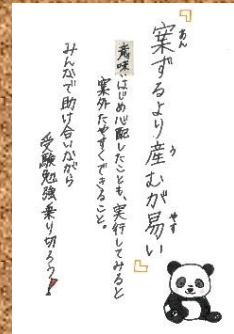 『案ずるより産むが易い』
意味:はじめ心配したことも、実行してみると
案外たやすくできること。
みんなで助け合いながら
受験勉強乗り切ろう!